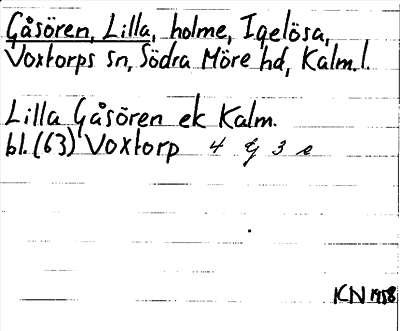 Gåsören, Lilla, holme, Igelösa,
Voxtorps sn, Södra Möre hd, Kalm.l.
Lilla Gåsören ek Kalm.
bl. (63) Voxtorp 4 G 3 e
KN 1958